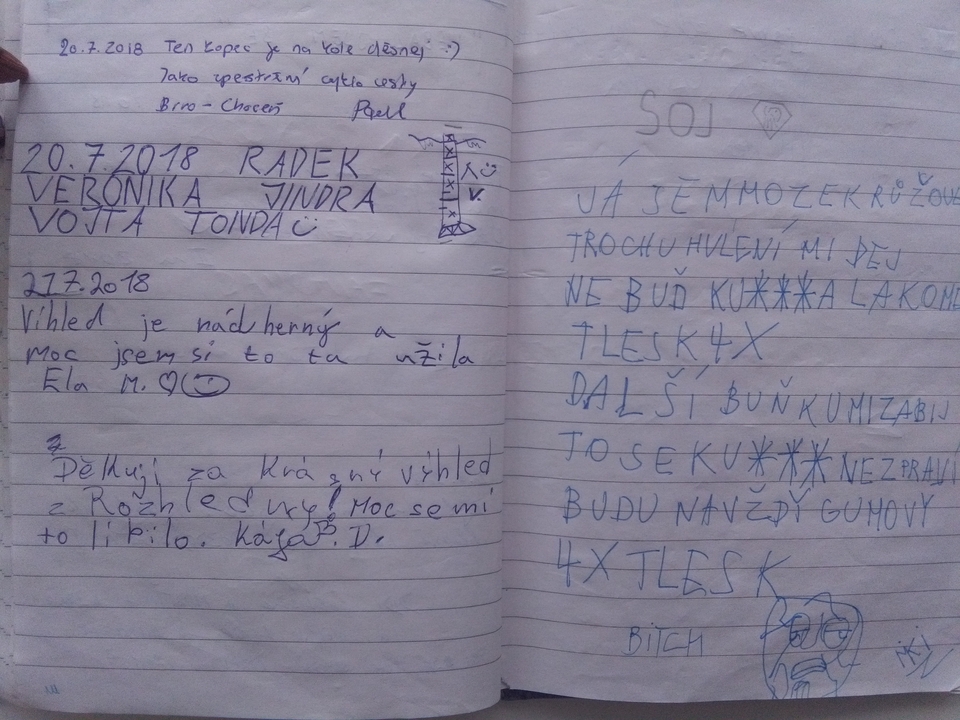 20.7.2018 Ten kopec je na kole děsnej :)
Jako zpestření cyklo cesky
Brno - Choceň Pavel
20.7.2018 RADEK
VERONIKA JINDRA
VOJTA TONDA
V.
21.7.2018
Víhled je nádherný a
moc jsem si to ta užila
Ela M.
Děkuji za krásný výhled
z Rozhledny! Moc se mi
to líbilo. Kája B. D.
SOJ
JÁ JSEM MOZEK RŮŽOVE
TROCHU HULENÍ MI DEJ
NE BUĎ KU***A LAKOME
TLESK 4X
DALŠÍ BUŇKU MI ZABIJ
TO SE KU*** NEZPRAVÍ
BUDU NAVŽDY GUMOVÝ
4X TLESK
BITCH